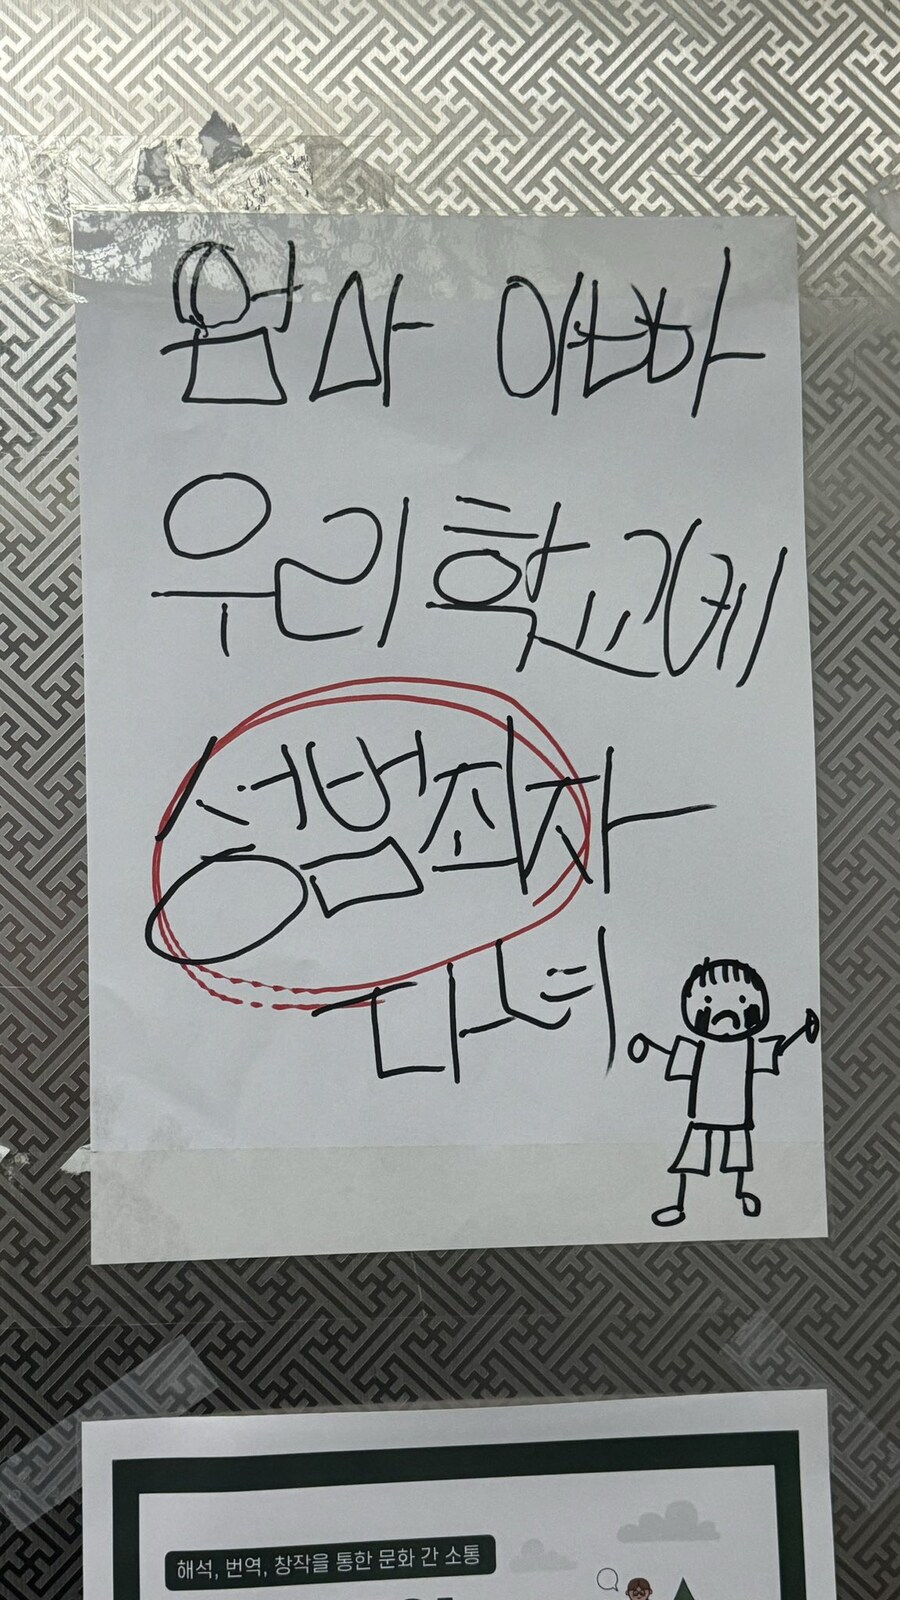 엄마 아빠
우리 학교에
성범죄자
다녀
해석, 번역, 창작을 통한 문화 간 소통